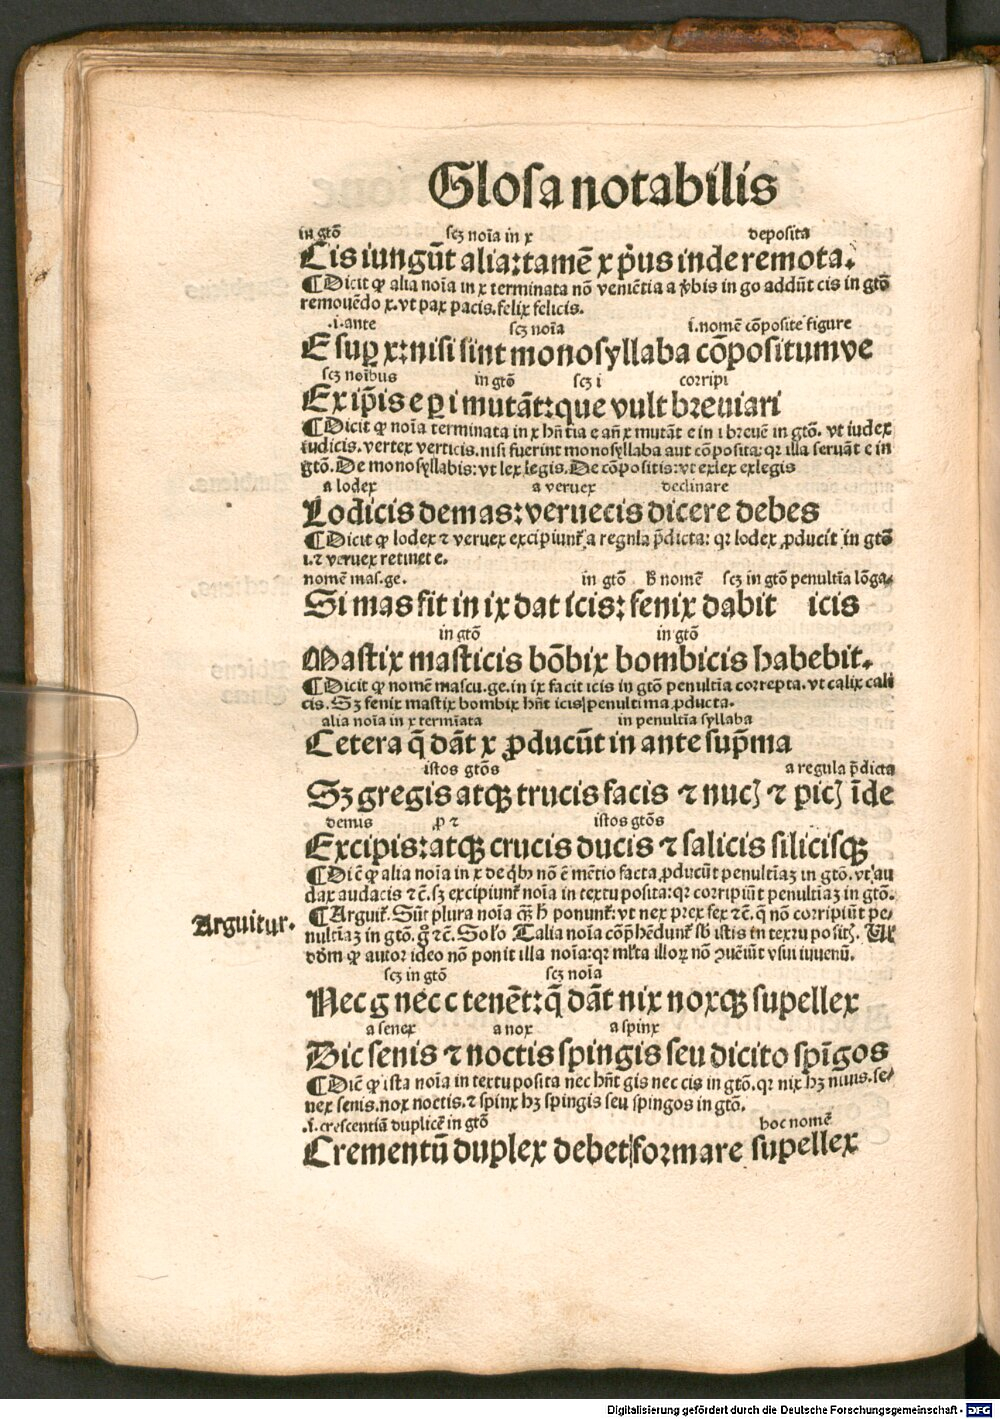 Glosa notabilis
in gtō scʒ noīa in x deposita
Cis iungūt alia: tamē x pͥus inde remota.
¶ Dicit ꝙ alia noīa in x terminata nō veniētia a ṽbis in go addūt cis in gtō
remouēdo x. vt pax pacis. felix felicis.
.i. ante scʒ noīa i. nomē cōposite figure
E suꝑ x: nisi sint monosyllaba cōpositumve
scʒ noībus in gtō scʒ i corripi
Ex ip̄is e ꝑ i mutāt: que vult breuiari
¶ Dicit ꝙ noīa terminata in x hn̄tia e añ x mutāt e in i breuē in gtō. vt iudex
iudicis. vertex verticis. nisi fuerint monosyllaba aut cōposita: qr illa seruāt e in
gtō. De monosyllabis: vt lex legis. De cōpositis: vt exlex exlegis
a lodex a veruex declinare
Lodicis demas: veruecis dicere debes
¶ Dicit ꝙ lodex ⁊ veruex excipiunt᷑ a regula p̄dicta: qr lodex ꝓducit in gtō
i. ⁊ veruex retinet e.
nomē mas. ge. in gtō ħ nomē scʒ in gtō penultīa lōga.
Si mas fit in ix dat icis: fenix dabit icis
in gtō in gtō
Mastix masticis bōbix bombicis habebit.
¶ Dicit ꝙ nomē mascu. ge. in ix facit icis in gtō penultīa correpta. vt calix cali
cis. Sʒ fenix mastix bombix hn̄t icis penultima ꝓducta.
alia noīa in x termīata in penultīa syllaba
Cetera q̄ dāt x ꝓducūt in ante sup̄ma
istos gtōs a regula p̄dicta
Sʒ gregis atqꝫ trucis facis ⁊ nucꝭ ⁊ picꝭ īde
demus ꝓ ⁊ istos gtōs
Excipis: atqꝫ crucis ducis ⁊ salicis silicisqꝫ
¶ Dic̄ ꝙ alia noīa in x de qͥbꝰ nō ē mētio facta ꝓducūt penultīaʒ in gtō. vt au
dax audacis ⁊c̄. sʒ excipiunt᷑ noīa in textu posita: qr corripiūt penultīaʒ in gtō.
Arguitur.
¶ Arguit᷑. Sūt plura noīa qꝫ̄ ħ ponunt᷑: vt nex prex fex ⁊c̄. q̄ nō corripiūt pe⸗
nultīaʒ in gtō. gͦ ⁊c̄. Solͦo Talia noīa cōp̄hēdunt᷑ sb̄ istis in textu positꝭ. Vel
dōm ꝙ autor ideo nō ponit illa noīa: qr ml̄ta illoꝝ nō ↄuēiūt vsui iuuenū.
scʒ in gtō scʒ noīa
Nec g nec c tenēt: q̄ dāt nix noxqꝫ supellex
a senex a nox a spinx
Dic senis ⁊ noctis spingis seu dicito spīgos
¶ Dic̄ ꝙ ista noīa in textu posita nec hn̄t gis nec cis in gtō. qr nix hʒ niuis. se⸗
nex senis. nox noctis. ⁊ spinx hʒ spingis seu spingos in gtō.
.i. crescentiā duplicē in gtō hoc nomē
Crementū duplex debet formare supellex
Digitalisierung gefördert durch die Deutsche Forschungsgemeinschaft - DFG